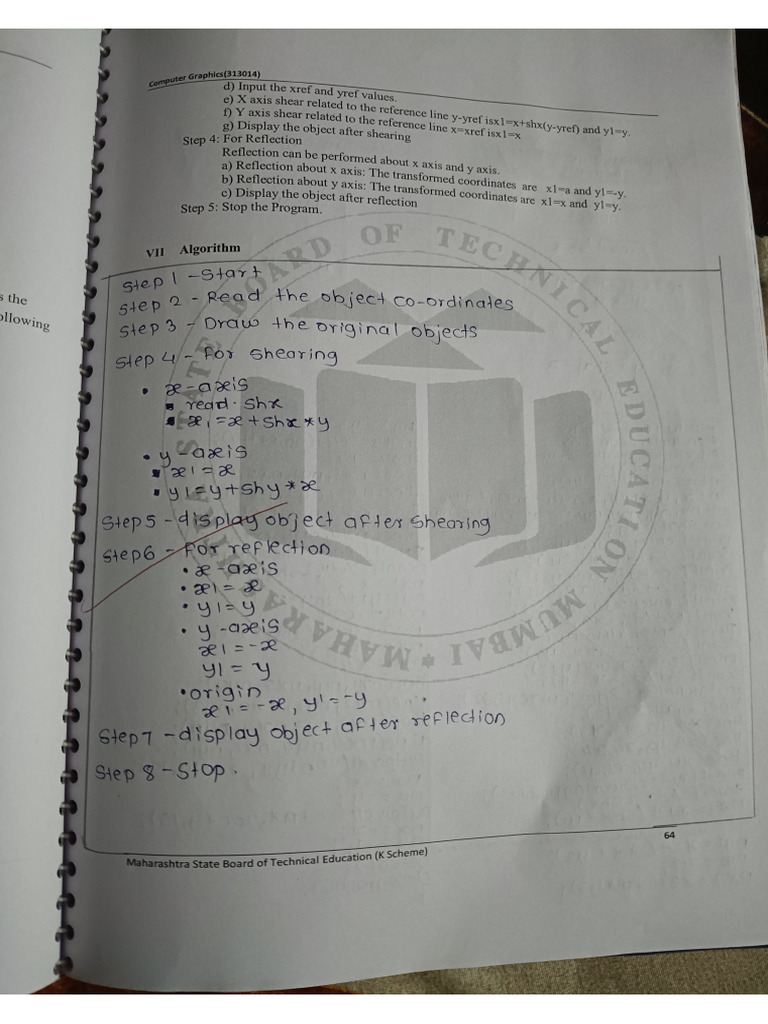 Computer Graphics(313014)
d) Input the xref and yref values.
e) X axis shear related to the reference line y-yref isx1=x+shx(y-yref) and y1=y.
f) Y axis shear related to the reference line x=xref isx1=x
g) Display the object after shearing
Step 4: For Reflection
Reflection can be performed about x axis and y axis.
a) Reflection about x axis: The transformed coordinates are x1=a and y1=-y.
b) Reflection about y axis: The transformed coordinates are x1=x and y1=y.
c) Display the object after reflection
Step 5: Stop the Program.
s the
ollowing
VII Algorithm
Step 1 - Start
Step 2 - Read the object co-ordinates
Step 3 - Draw the original objects
Step 4 - For shearing
• x-axis
▪ read. Shx
▪ x1 = x + Shx * y
• y-axis
▪ x1 = x
▪ y1 = y + shy * x
Step 5 - display object after shearing
Step 6 - For reflection
• x-axis
• x1 = x
• y1 = y
• y-axis
x1 = -x
y1 = y
• origin
x1 = -x, y1 = -y
Step 7 - display object after reflection
Step 8 - Stop.
64
Maharashtra State Board of Technical Education (K Scheme)
MAHARASHTRA STATE BOARD OF TECHNICAL EDUCATION MUMBAI